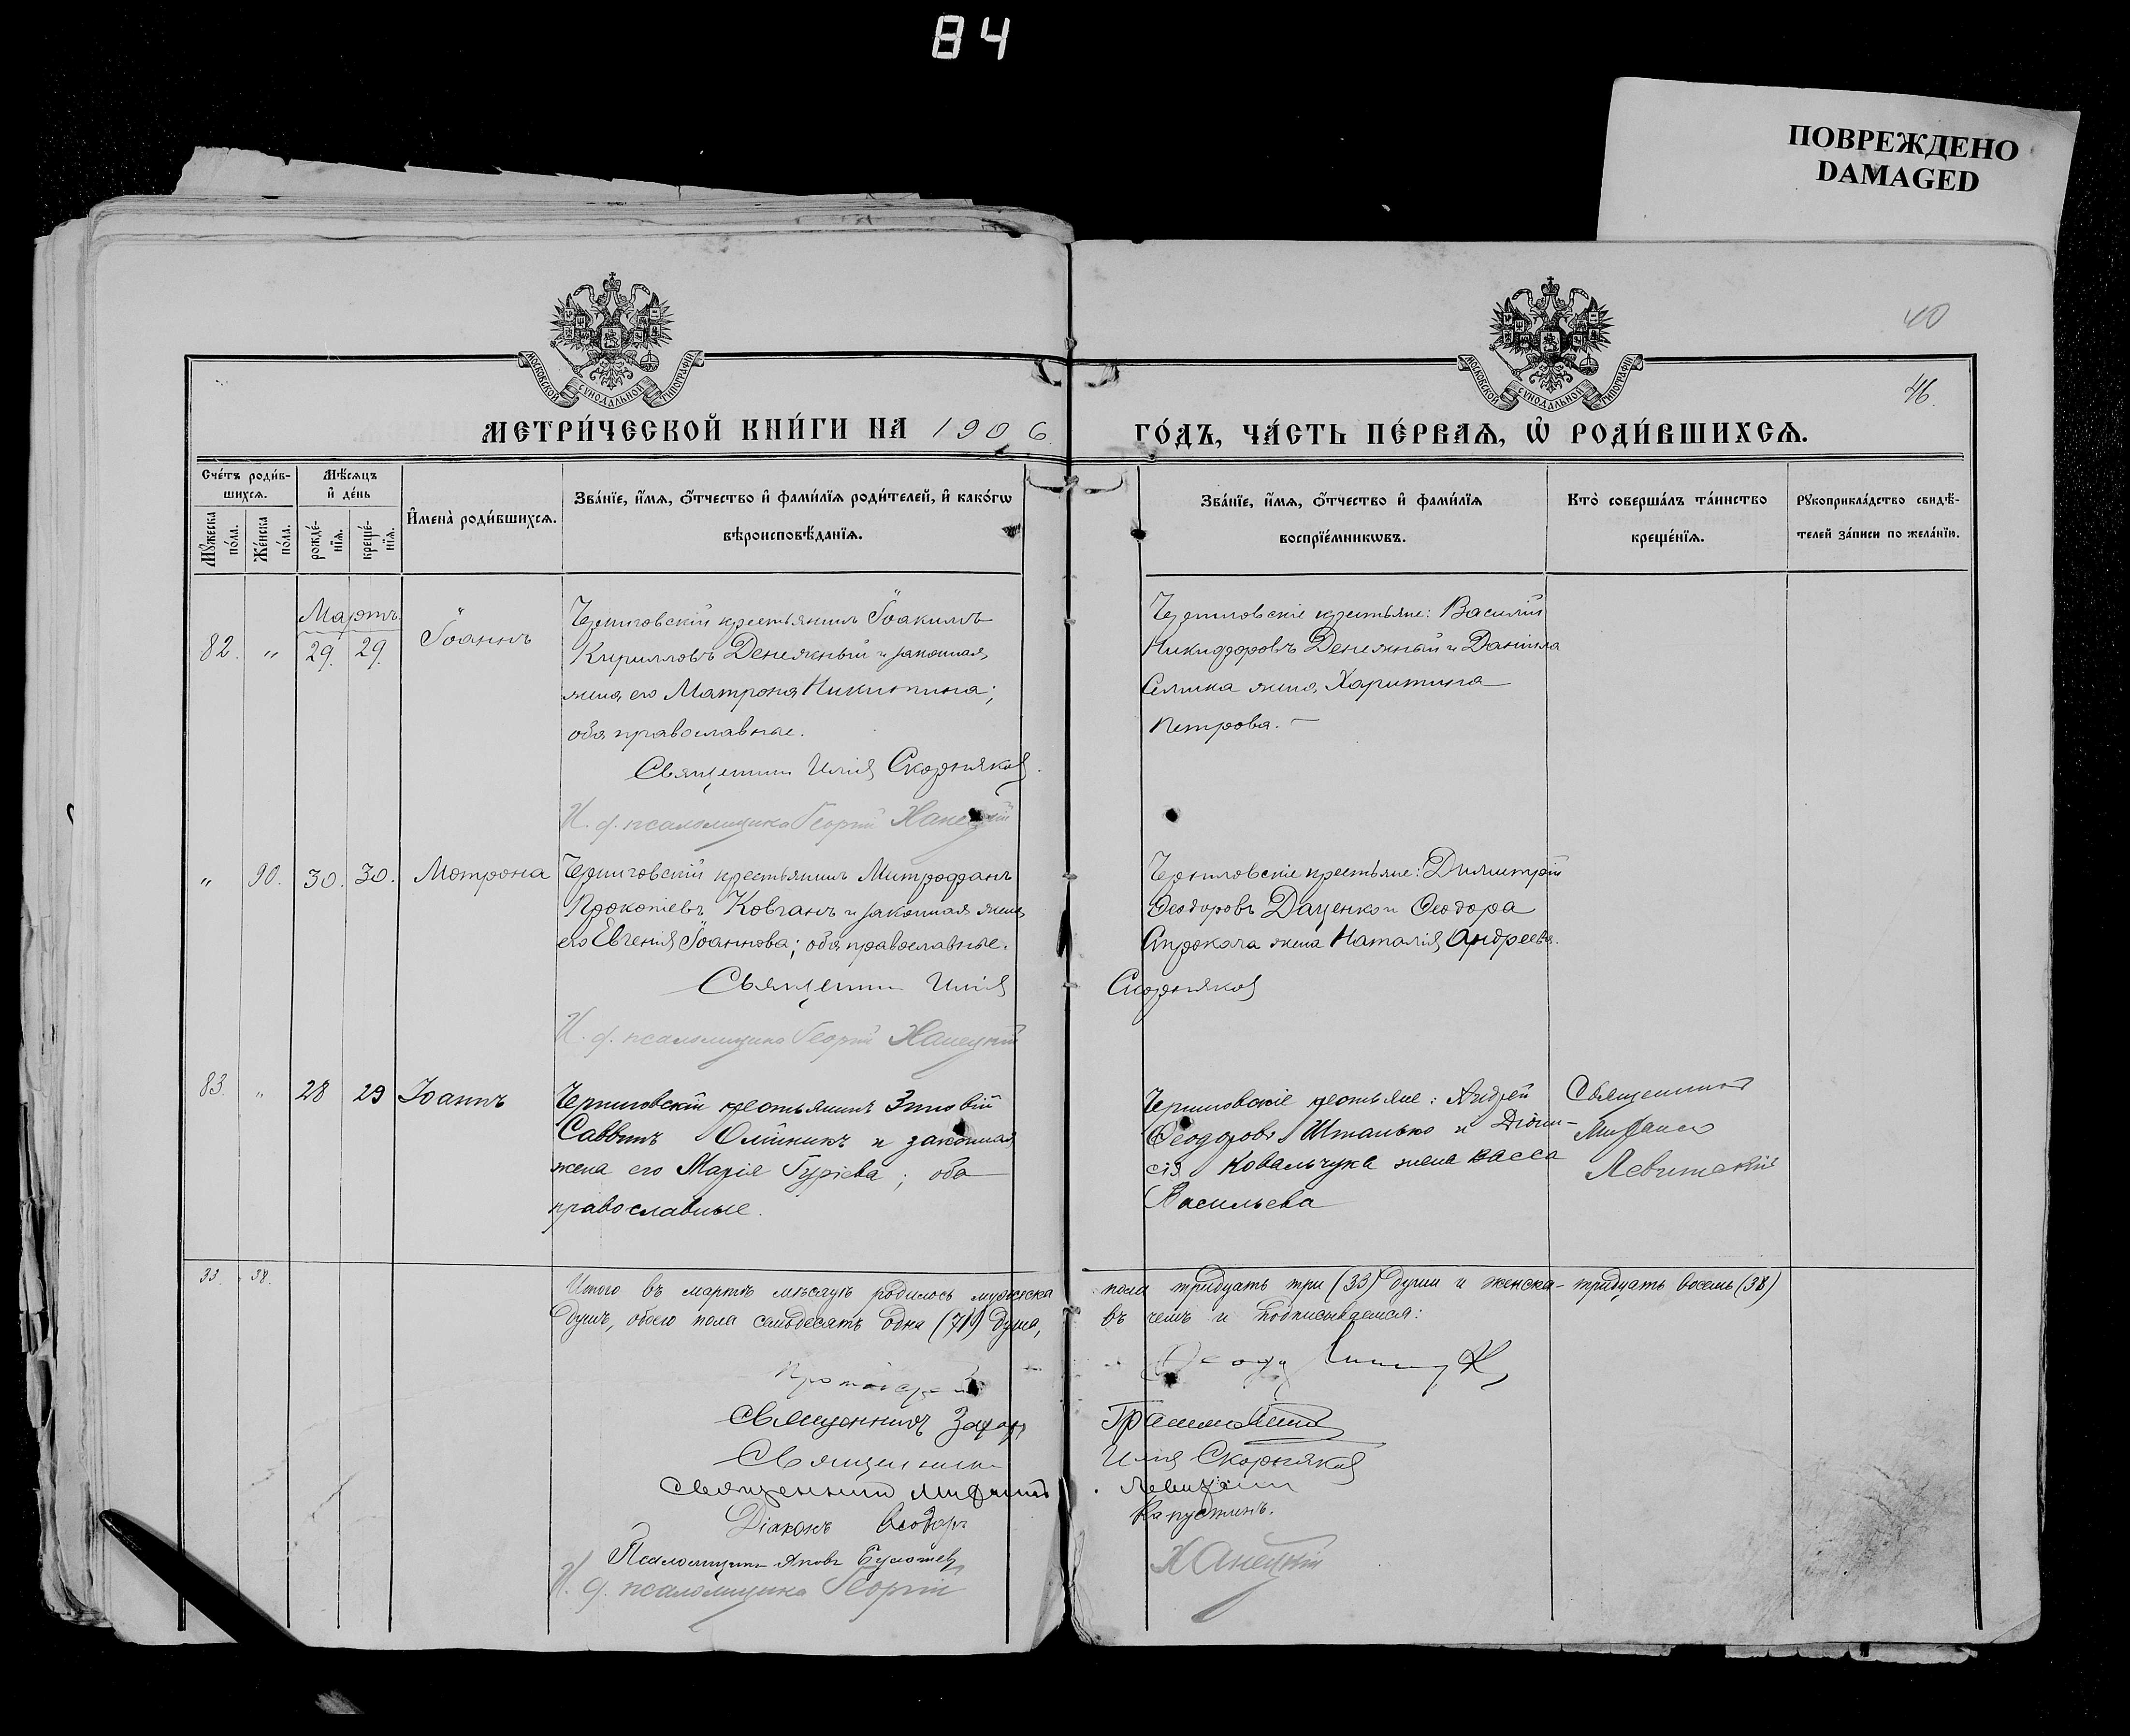 84
ПОВРЕЖДЕНО
DAMAGED
40
46.
МОСКОВСКОЙ СѴНОДАЛЬНОЙ ТИПОГРАФІИ
МОСКОВСКОЙ СѴНОДАЛЬНОЙ ТИПОГРАФІИ
МЕТРИ́ЧЕСКОЙ КНИ́ГИ НА 1906
ГО́ДЪ, ЧА́СТЬ ПЕ́РВАѦ, Ѡ҆ РОДИ́ВШИХСѦ.
Сче́тъ роди́в-
шихсѧ.
Мꙋ́жеска
по́ла.
Же́нска
по́ла.
Мѣ́сѧцъ
и҆ де́нь
рожде́-
нїѧ.
креще́-
нїѧ.
И҆мена̀ роди́вшихсѧ.
Зва́нїе, и҆́мѧ, ѻ҆́тчество и҆ фами́лїѧ роди́телей, и҆ како́гѡ
вѣроисповѣ́данїѧ.
Зва́нїе, и҆́мѧ, ѻ҆́тчество и҆ фами́лїѧ
воспрїе́мникѡвъ.
Кто̀ соверша́лъ та́инство
креще́нїѧ.
Рꙋкоприкла́дство свидѣ́-
телей за́писи по жела́нїю.
Мартъ
82. " 29. 29. Іоаннъ
Черниговскій крестьянинъ Іоакимъ
Кирилловъ Денежный и законная
жена его Матрона Никитина;
оба православные.
Священникъ Илія Скорняковъ.
И. д. псаломщика Георгій Ханецкій
Черниговскіе крестьяне: Василій
Никифоровъ Денежный и Даніила
жена Харитина
Петрова. —
" 90. 30. 30. Мотрона
Черниговскій крестьянинъ Митрофанъ
Прокопіевъ Ковганъ и законная жена
его Евгенія Іоаннова; оба православные.
Священникъ Илія
Скорняковъ
И. д. псаломщика Георгій Ханецкій
Черниговскіе крестьяне: Димитрій
Ѳеодоровъ Даценко и Ѳеодора
жена Наталія Андреева.
83. " 28 29 Іоаннъ
Черниговскій крестьянинъ Зиновій
Саввинъ Олійникъ и законная
жена его Марія Гуріева; оба
православные.
Черниговскіе крестьяне: Андрей
Ѳеодоровъ Шталько и Діони-
сія Ковальчука жена Васса
Васильева
Священникъ
Михаилъ
Левитскій
33. 38.
Итого въ мартѣ мѣсяцѣ родилось мужеска пола тридцать три (33) души и женска- тридцать восемь (38)
душъ, обоего пола семьдесятъ одна (71) душа, въ чемъ и подписываемся:
Протоіерей
Священникъ
Священникъ Илія Скорняковъ
Священникъ Михаилъ Левитскій
Діаконъ Ѳеодоръ Капустинъ.
Псаломщикъ Яковъ
И. д. псаломщика Георгій Ханецкій